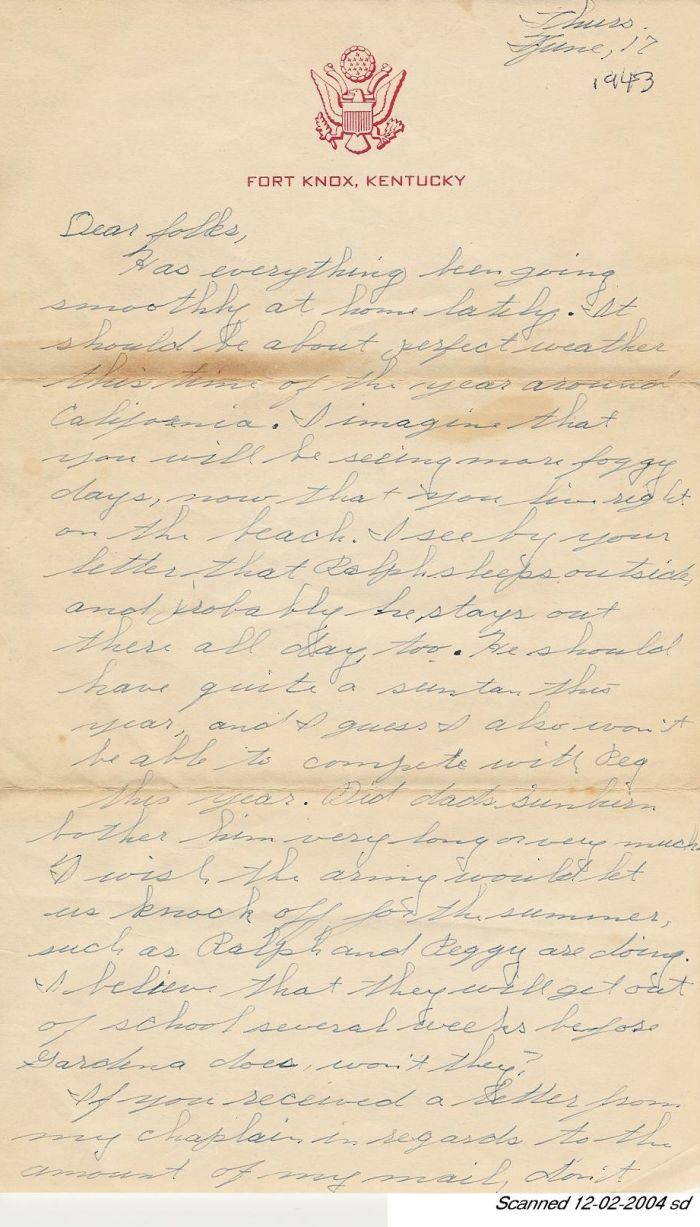 Thurs.
June, 17
1943
FORT KNOX, KENTUCKY
Dear folks,
Has everything been going
smoothly at home lately. It
should be about perfect weather
this time of the year around
California. I imagine that
you will be seeing more foggy
days, now that you live right
on the beach. I see by your
letter that Ralph sleeps outside,
and probably he stays out
there all day, too. He should
have quite a suntan this
year, and I guess I also won't
be able to compete with Peg
this year. Did dads sunburn
bother him very long or very much.
I wish the army would let
us knock off for the summer,
such as Ralph and Peggy are doing.
I believe that they will get out
of school several weeks before
Gardena does, won't they?
If you received a letter from
my chaplain in regards to the
amount of my mail, don't
Scanned 12-02-2004 sd